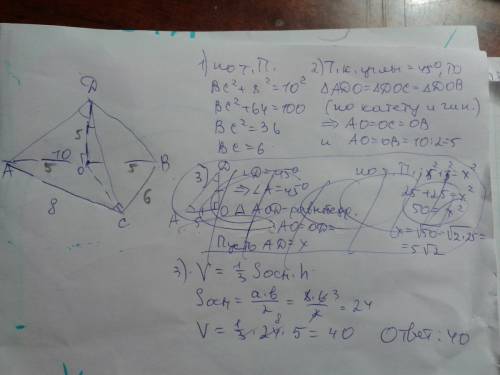 D
5
10
A
5
O
5
B
6
8
C
1) по т. П.
BC² + 8² = 10²
BC² + 64 = 100
BC² = 36
BC = 6
2) Т.к. углы = 45°, то
△ADO = △DOC = △DOB
(по катету и гип.)
⇒ AO = OC = OB
и AO = OB = 10:2 = 5
3) D
∠D = 45°
⇒ ∠A = 45°
A O △AOD - равнобедр.
AO = OD =
Пусть AD = x
по т. П.: x² =
25 + 25 = x²
50 = x²
x = √50 = √2·25 =
= 5√2
3). V = 1/3 Sосн. h
Sосн = a·b/2 = 8·6 3/2 = 24
V = 1/3 · 24 8 · 5 = 40 Ответ: 40